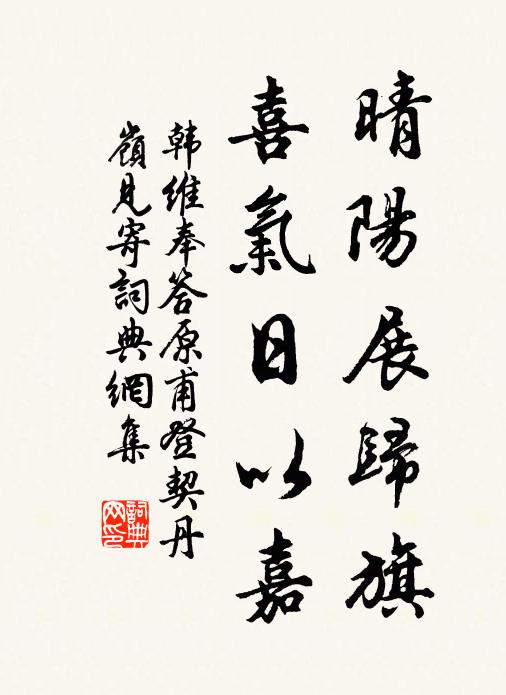 晴陽展歸旗
喜氣日以嘉
韩維奉答原甫登契丹
嶺見寄詞典網集
詞典网印